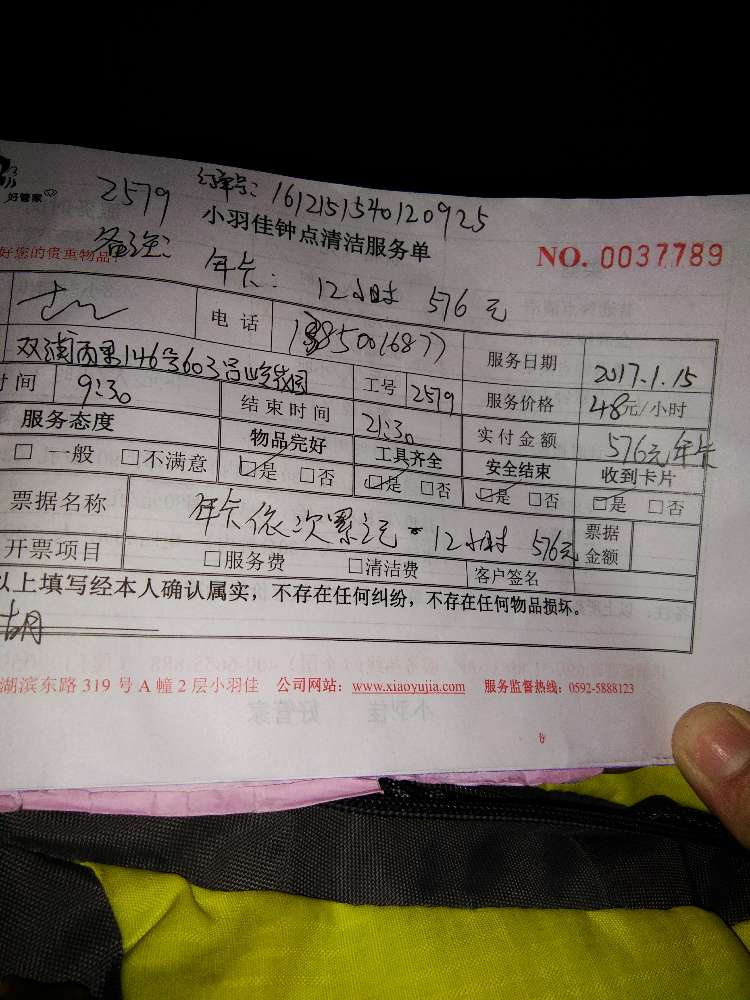 好管家
2579 订单号：1612151540120925
小羽佳钟点清洁服务单
好您的贵重物品！
NO. 0037789
备注：年卡：12小时 576元
电话
服务日期 2017.1.15
146号603
工号 2579 服务价格 48元/小时
时间 9:30 结束时间 21:30 实付金额 576元年卡
服务态度 物品完好 工具齐全 安全结束 收到卡片
□ 一般 □不满意 ☑是 □否 ☑是 □否 ☑是 □否 ☑是 □否
票据名称 年卡依次累记 12小时 576元 票据金额
开票项目 □服务费 □清洁费 客户签名
以上填写经本人确认属实，不存在任何纠纷，不存在任何物品损坏。
湖滨东路 319 号 A 幢 2 层小羽佳 公司网站：www.xiaoyujia.com 服务监督热线：0592-5888123